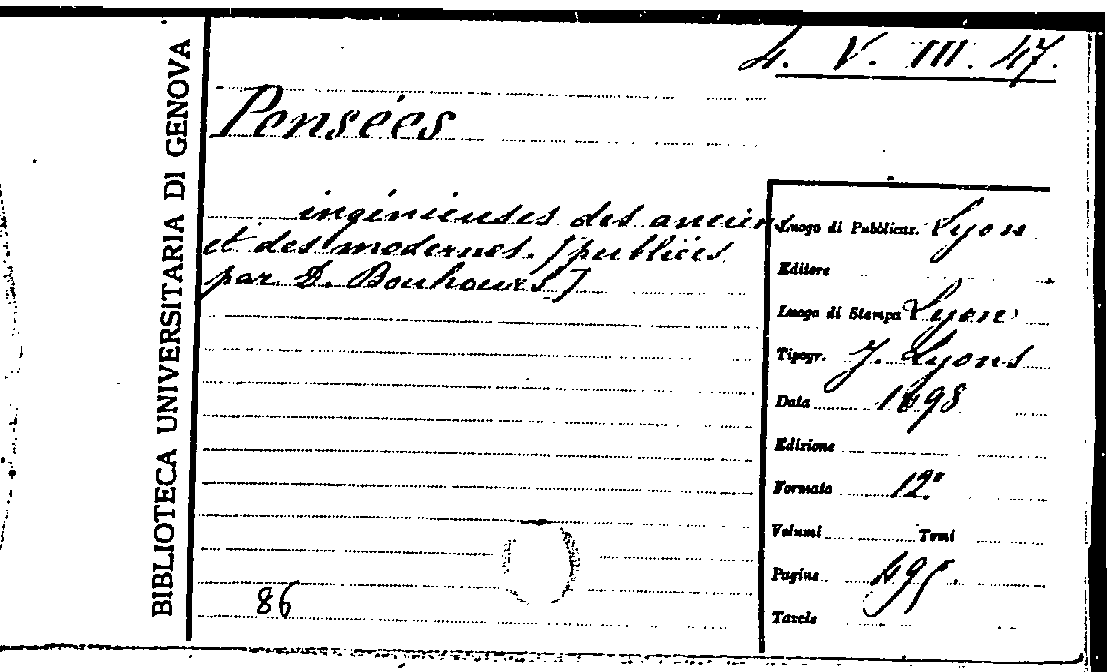 4. V. III. 47.
BIBLIOTECA UNIVERSITARIA DI GENOVA
Pensées
ingénieuses des anciens
et des modernes. [publiées
par D. Bouhours]
Luogo di Pubblicaz. Lyon
Editore
Luogo di Stampa Lyon
Tipogr. J. Lyons
Data 1698
Edizione
Formato 12°
Volumi Tomi
Pagine 495.
Tavole
86